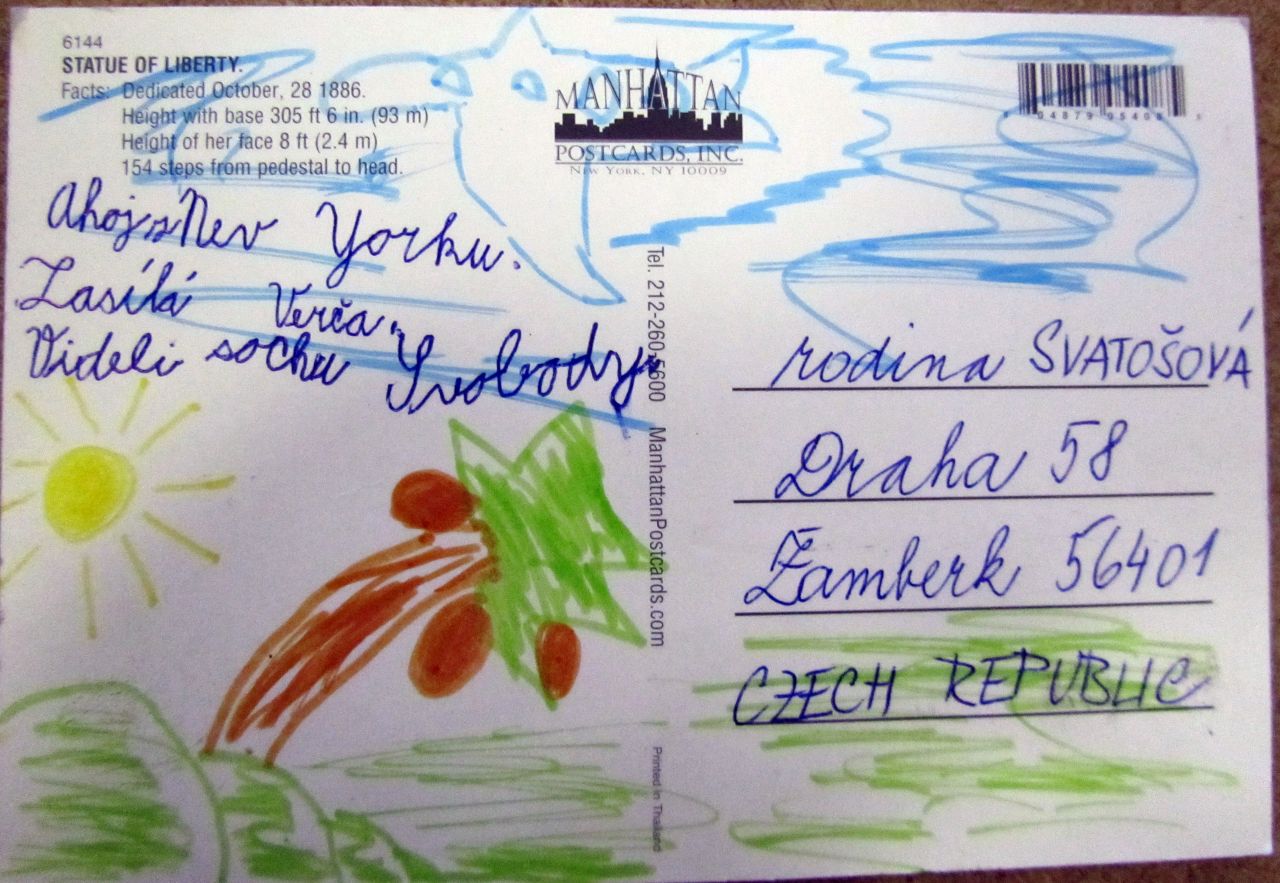 6144
STATUE OF LIBERTY.
Facts: Dedicated October, 28 1886.
Height with base 305 ft 6 in. (93 m)
Height of her face 8 ft (2.4 m)
154 steps from pedestal to head.
MANHATTAN
POSTCARDS, INC.
NEW YORK, NY 10009
Ahoj z Nev Yorku.
Zasílá Verča.
Videli sochu Svobody.
Tel. 212-260-5600 ManhattanPostcards.com
Printed in Thailand
rodina SVATOŠOVÁ
Draha 58
Žamberk 56401
CZECH REPUBLIC